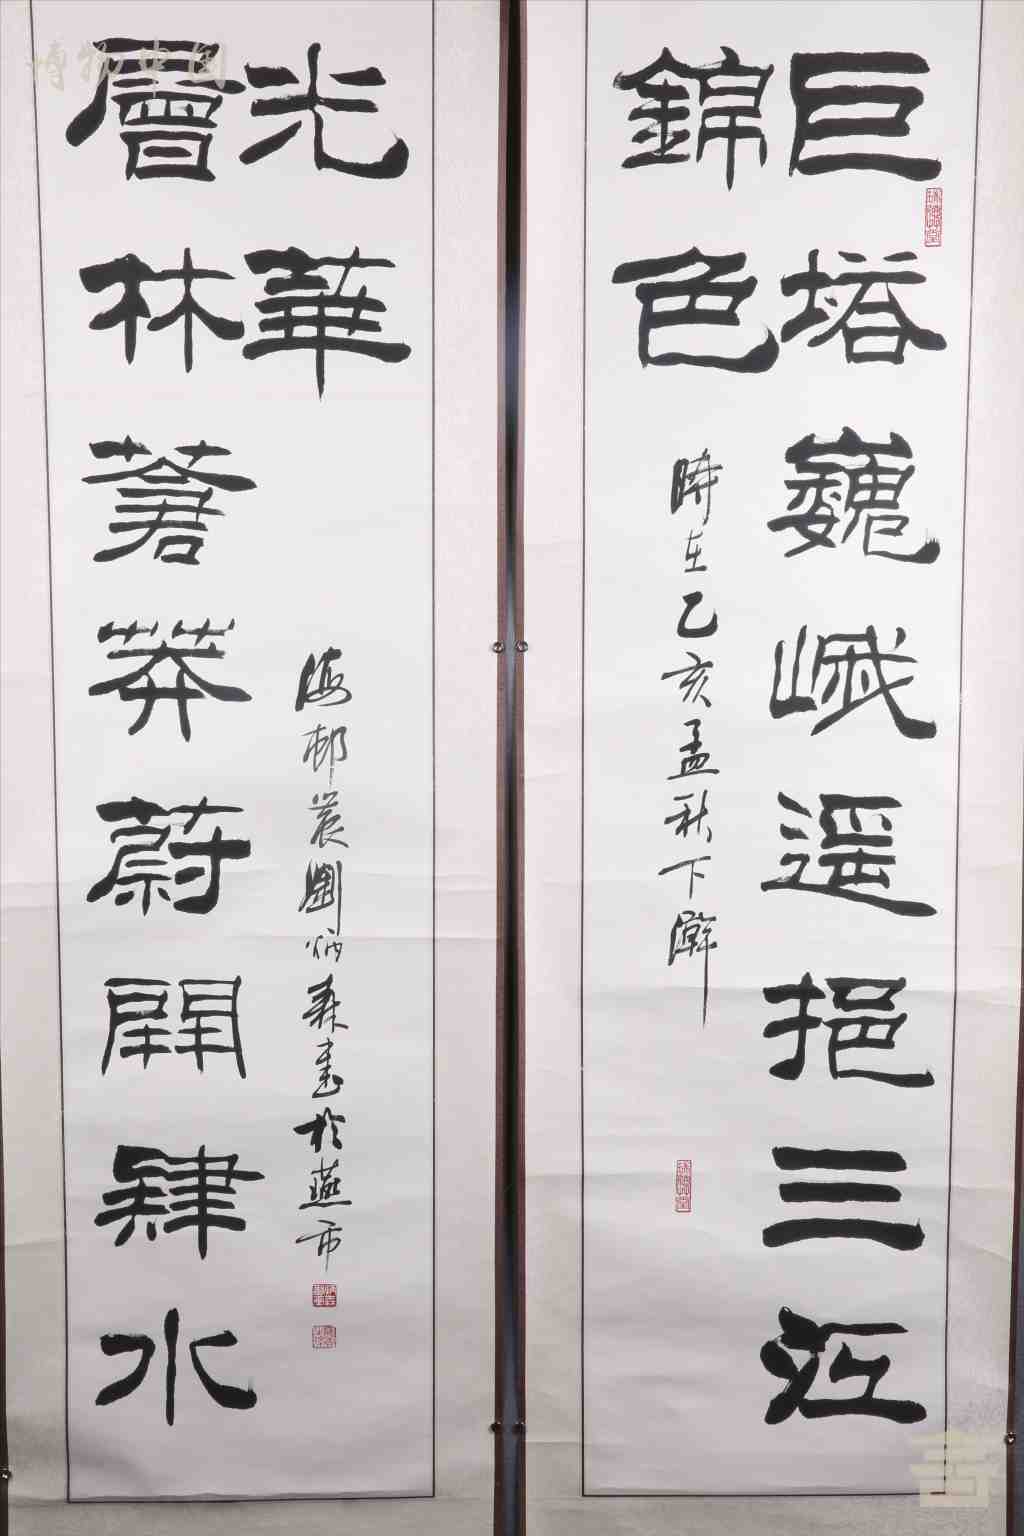 巨塔巍峨遙挹三江
錦色
時在乙亥孟秋下澣
層林蒼莽蔚開肆水
光華
海邨農劉炳森書於燕市
博物中国